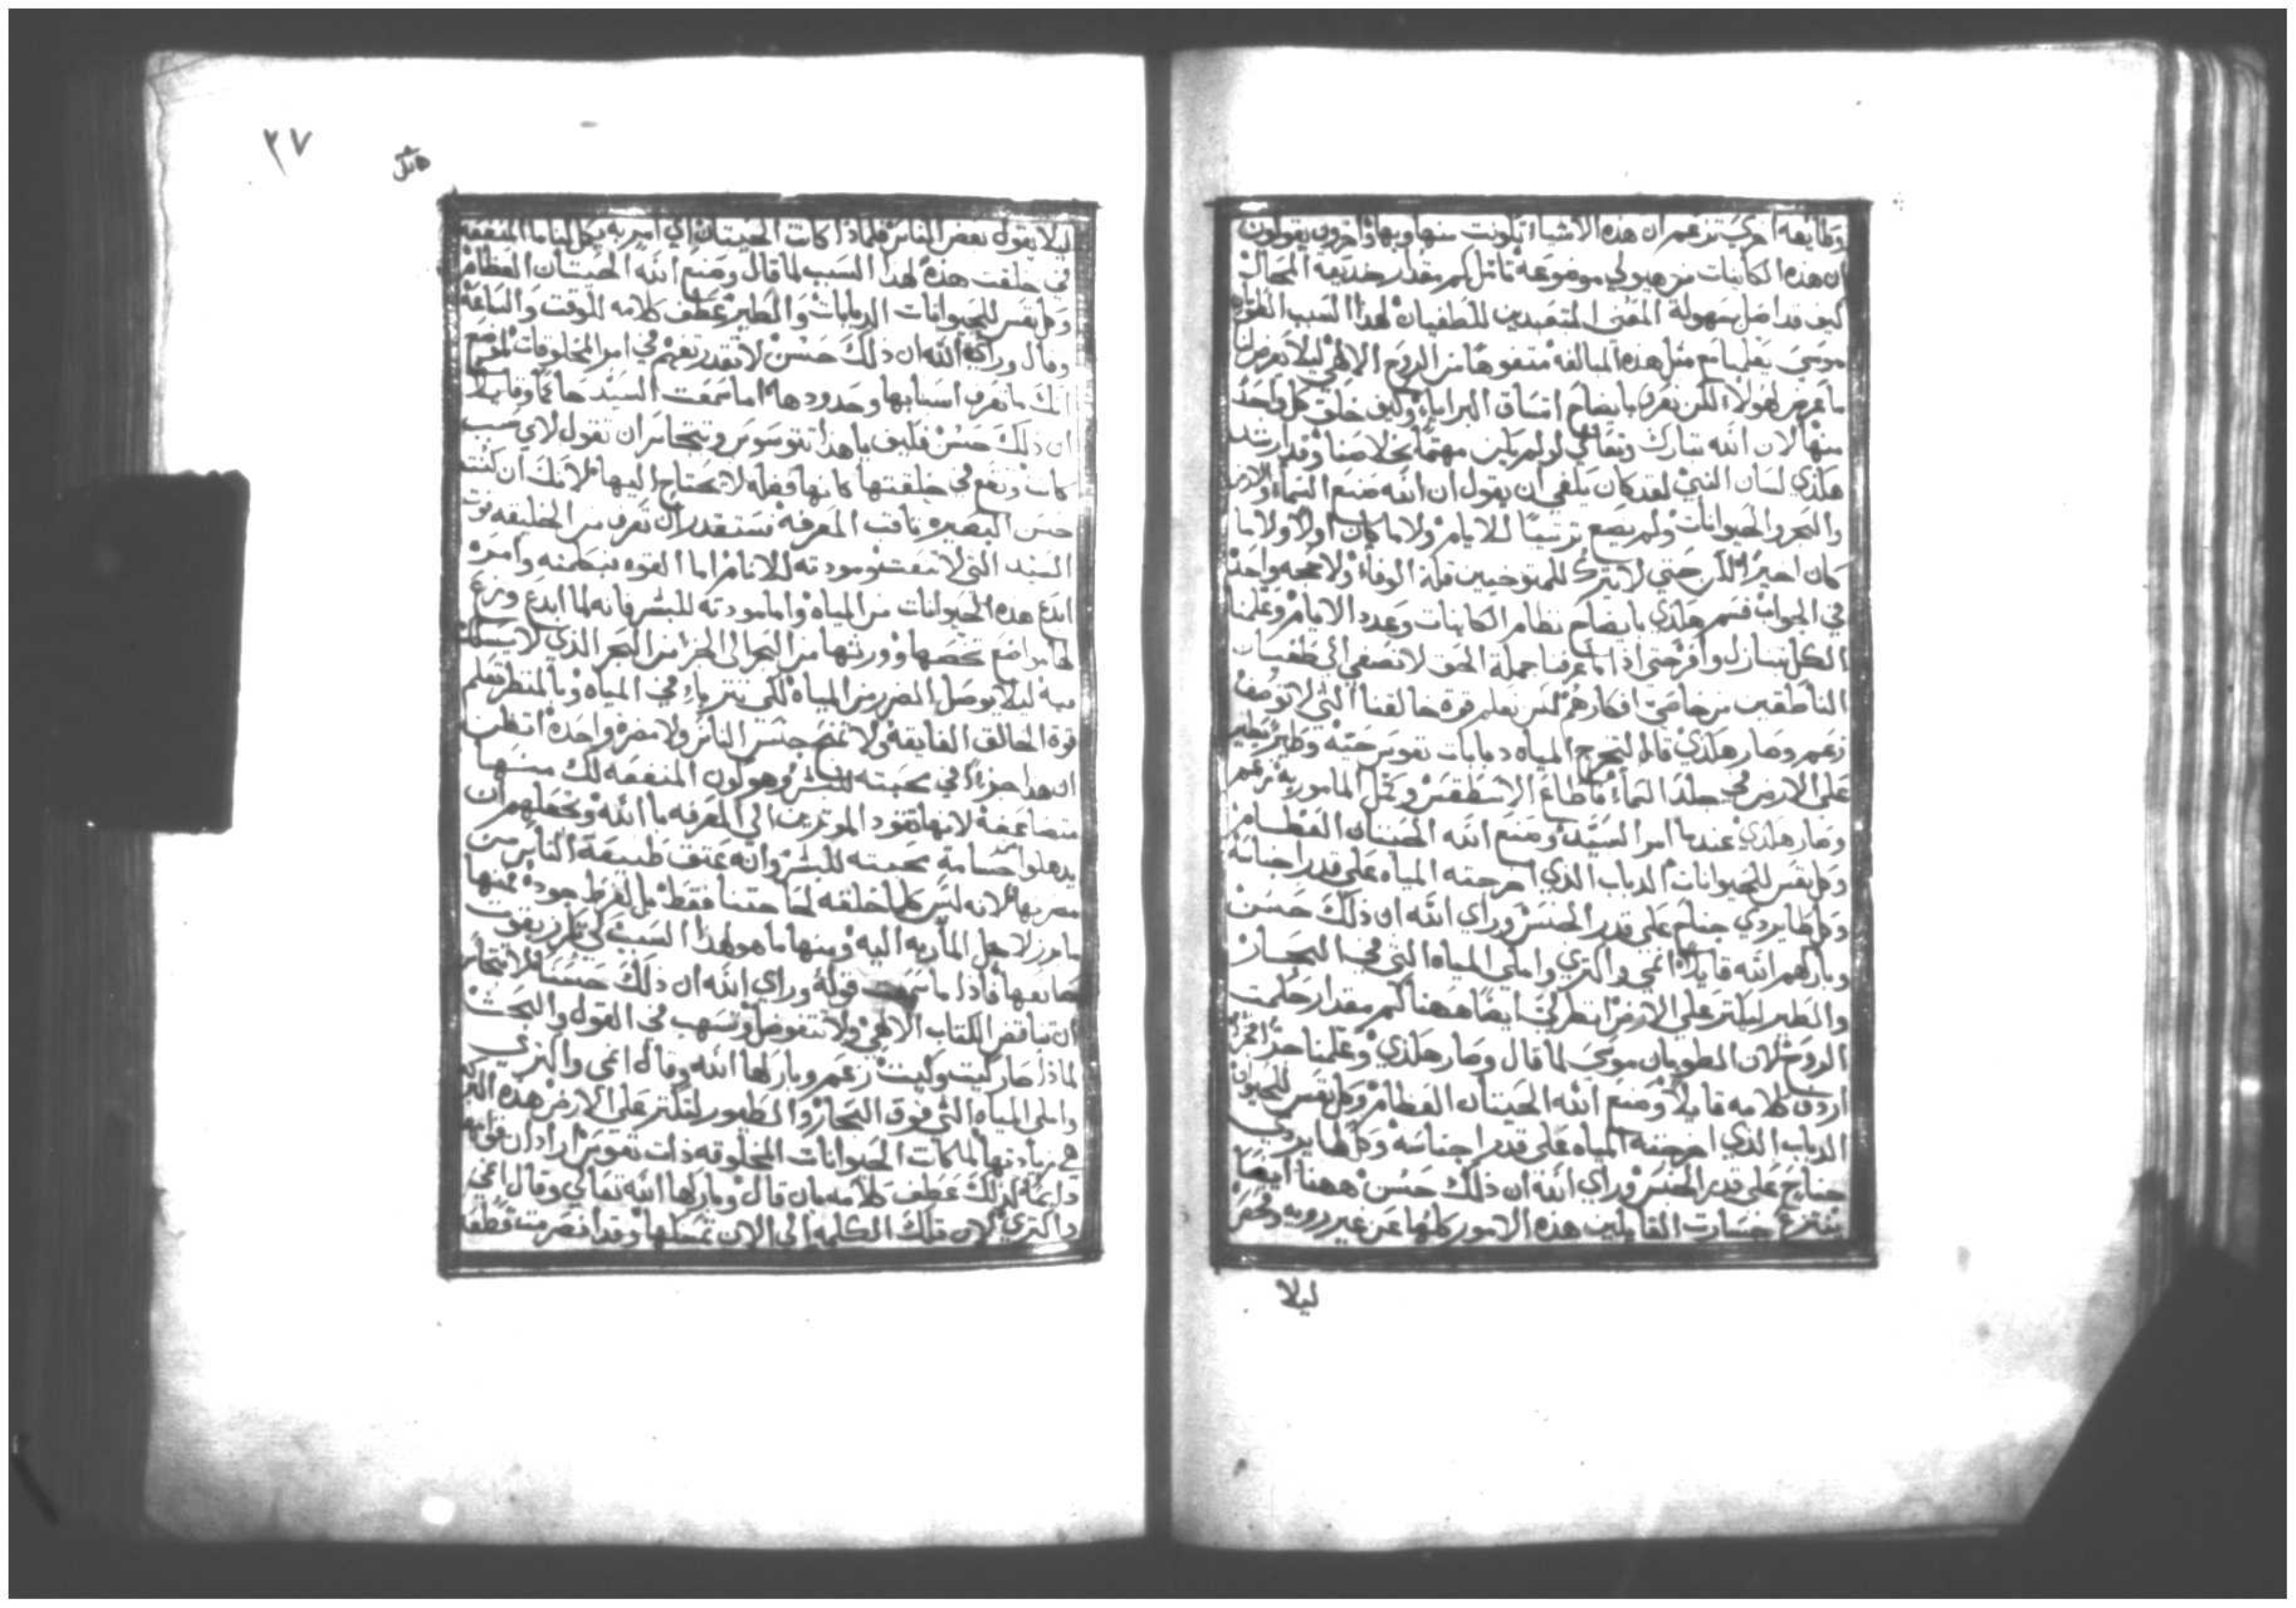 وطايفه اخري تزعم ان هذه الاشياء تكونت منها وبها واخرون يقولون
ان هذه الكاينات من هيولي موضوعة تامل كم مقدار خديعة المحال
كيف قد اضل سهولة المتعبدين للطغيان لهذا السبب الطوبان
موسي مثل هذه المبالغه متفوها من الروح الالهي ليلا يعرض لنا
ما عرض لهولاء لكن نعرف بايضاح اتساق البرايا وكيف خلق كل واحد
منها لان الله تبارك وتعالي لو لم يكن مهتما بخلاصنا وقد ارشد
هكذي لسان النبي لقد كان يكفي ان يقول ان الله صنع السماء والارض
والبحر والحيوانات ولم يضع ترتيبا للايام ولا ما كان اولا ولا ما
كان اخيرا لكن حتي لا يترك للمتوخيين قلة الوفاء ولا حجه واحدة
في الجواب قسم هكذي بايضاح نظام الكاينات وعدد الايام وعلمنا
الكل بتنازل وافر حتي اذا ما عرفنا جملة الحق لا نصغي الي طغيان
الناطقين من خاصي افكارهم لكن نعلم قوة خالقنا التي لا توصف
زعم وصار هكذي قال لتخرج المياه دبابات نفوس حية وطير تطير
علي الارض في جلد السماء فاطاع الاسطقس وكمل المامور به زعم
وصار هكذي عندما امر السيد وصنع الله الحيتان العظام
وكل نفس للحيوانات الدباب الذي اخرجته المياه علي قدر اجناسه
وكل طاير ذي جناح علي قدر الجنس وراي الله ان ذلك حسن
وباركهم الله قايلا انمي واكثري واملي المياه التي في البحار
والطير ليكثر علي الارض انظر لي ايضا ههنا كم مقدار حكمت
الروح لان الطوبان موسي لما قال وصار هكذي وعلمنا
اردف كلامه قايلا وصنع الله الحيتان العظام وكل نفس للحيوان
الدباب الذي اخرجته المياه علي قدر اجناسه وكل طاير ذي
جناح علي قدر الجنس وراي الله ان ذلك حسن ههنا ايضا
ينتزع جسارت القايلين هذه الامور كلها عن غير رويه وفحص
ليلا
٢٧
ليلا يقول بعض الناس فلماذا كانت الحيتان اي امر به كل لنا ما المنفعة
في خلقت هذه لهذا السبب لما قال وصنع الله الحيتان العظام
وكل نفس للحيوانات الدبابات والطير عطف كلامه للوقت والساعة
وقال وراي الله ان ذلك حسن لا تقدر تفهم في امر المخلوقات
انك ما تعرف اسبابها وحدودها اما سمعت السيد حاكما وقايلا
ان ذلك حسن فكيف يا هذا تتوسوس وتتجاسر ان تقول لاي سبب
كانت وتقع في خلقتها كانها فضله لا يحتاج اليها لانك ان كنت
حسن البصيره ثاقب المعرفة فستقدر ان تعرف من الخليقه قوت
السيد التي لا ومودته للانام اما القوه فبكلمته وامره
ابدع هذه الحيوانات من المياه واما مودته للبشر فانه لما ابدع
لها مواضع تخصها من البحر الذي لا
فيه ليلا توصل الضرر من المياه لكي في المياه وبالمنظر تعلم
قوة الخالق الفايقة ولا جنس الناس ولا مضرة واحدة اتظن
ان هذا جزءا في محبته للبشر وهو كون المنفعه لك منها
متضاعفة لانها تقود الموثرين الي المعرفه بالله وتجعلهم ان
يذهلوا محبته للبشر وانه عتق طبيعة الناس من
مضربها لانه ليس كلها خلقه لحاجتنا فقط بل لفرط جوده منها
ما هو لهذا السبب لكي
صانعها فاذا ما سمعت قوله وراي الله ان ذلك حسنا لا تتجاسر
ان تناقض الكتاب الالهي ولا تتفوضل وتسهب في القول والبحث
لماذا صار كيت وكيت زعم وباركها الله وقال انمي واكثري
واملي المياه التي فوق البحار والطيور لتكثر علي الارض هذه
هي زيادتها لما كانت الحيوانات المخلوقه ذات نفوس اراد ان
دايما كذلك عطف كلامه بان قال وباركها الله تعالي وقال انمي
واكثري لان تلك الكلمه الي الان تمسكها وقد